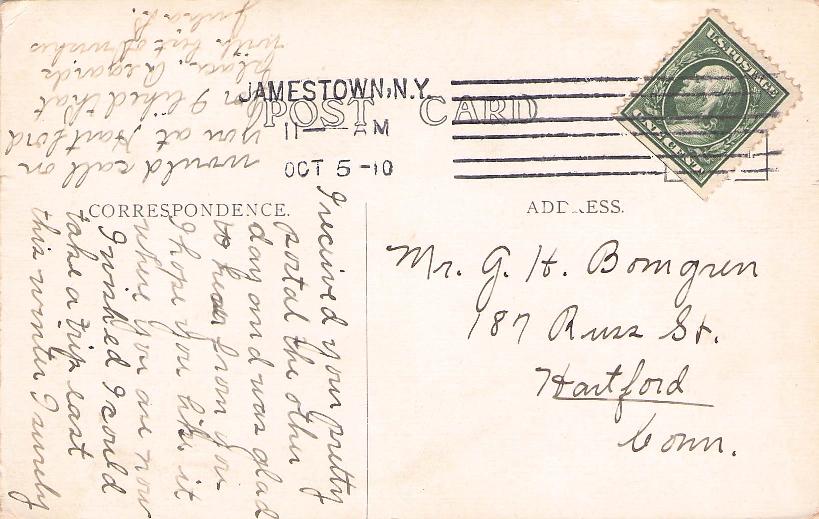 JAMESTOWN, N.Y.
11 — AM
OCT 5 - 10
POST CARD
U.S. POSTAGE
CORRESPONDENCE.
ADDRESS.
Mr. G. H. Bomgren
187 Russ St.
Hartford
Conn.
I recieved your pretty
postal the other
day and was glad
to hear from you
I hope you like it
where you are now
I wished I could
take a trip east
this winter I surely
would call on
you at Hartford
for I liked that
place. Regards
with best of wishes